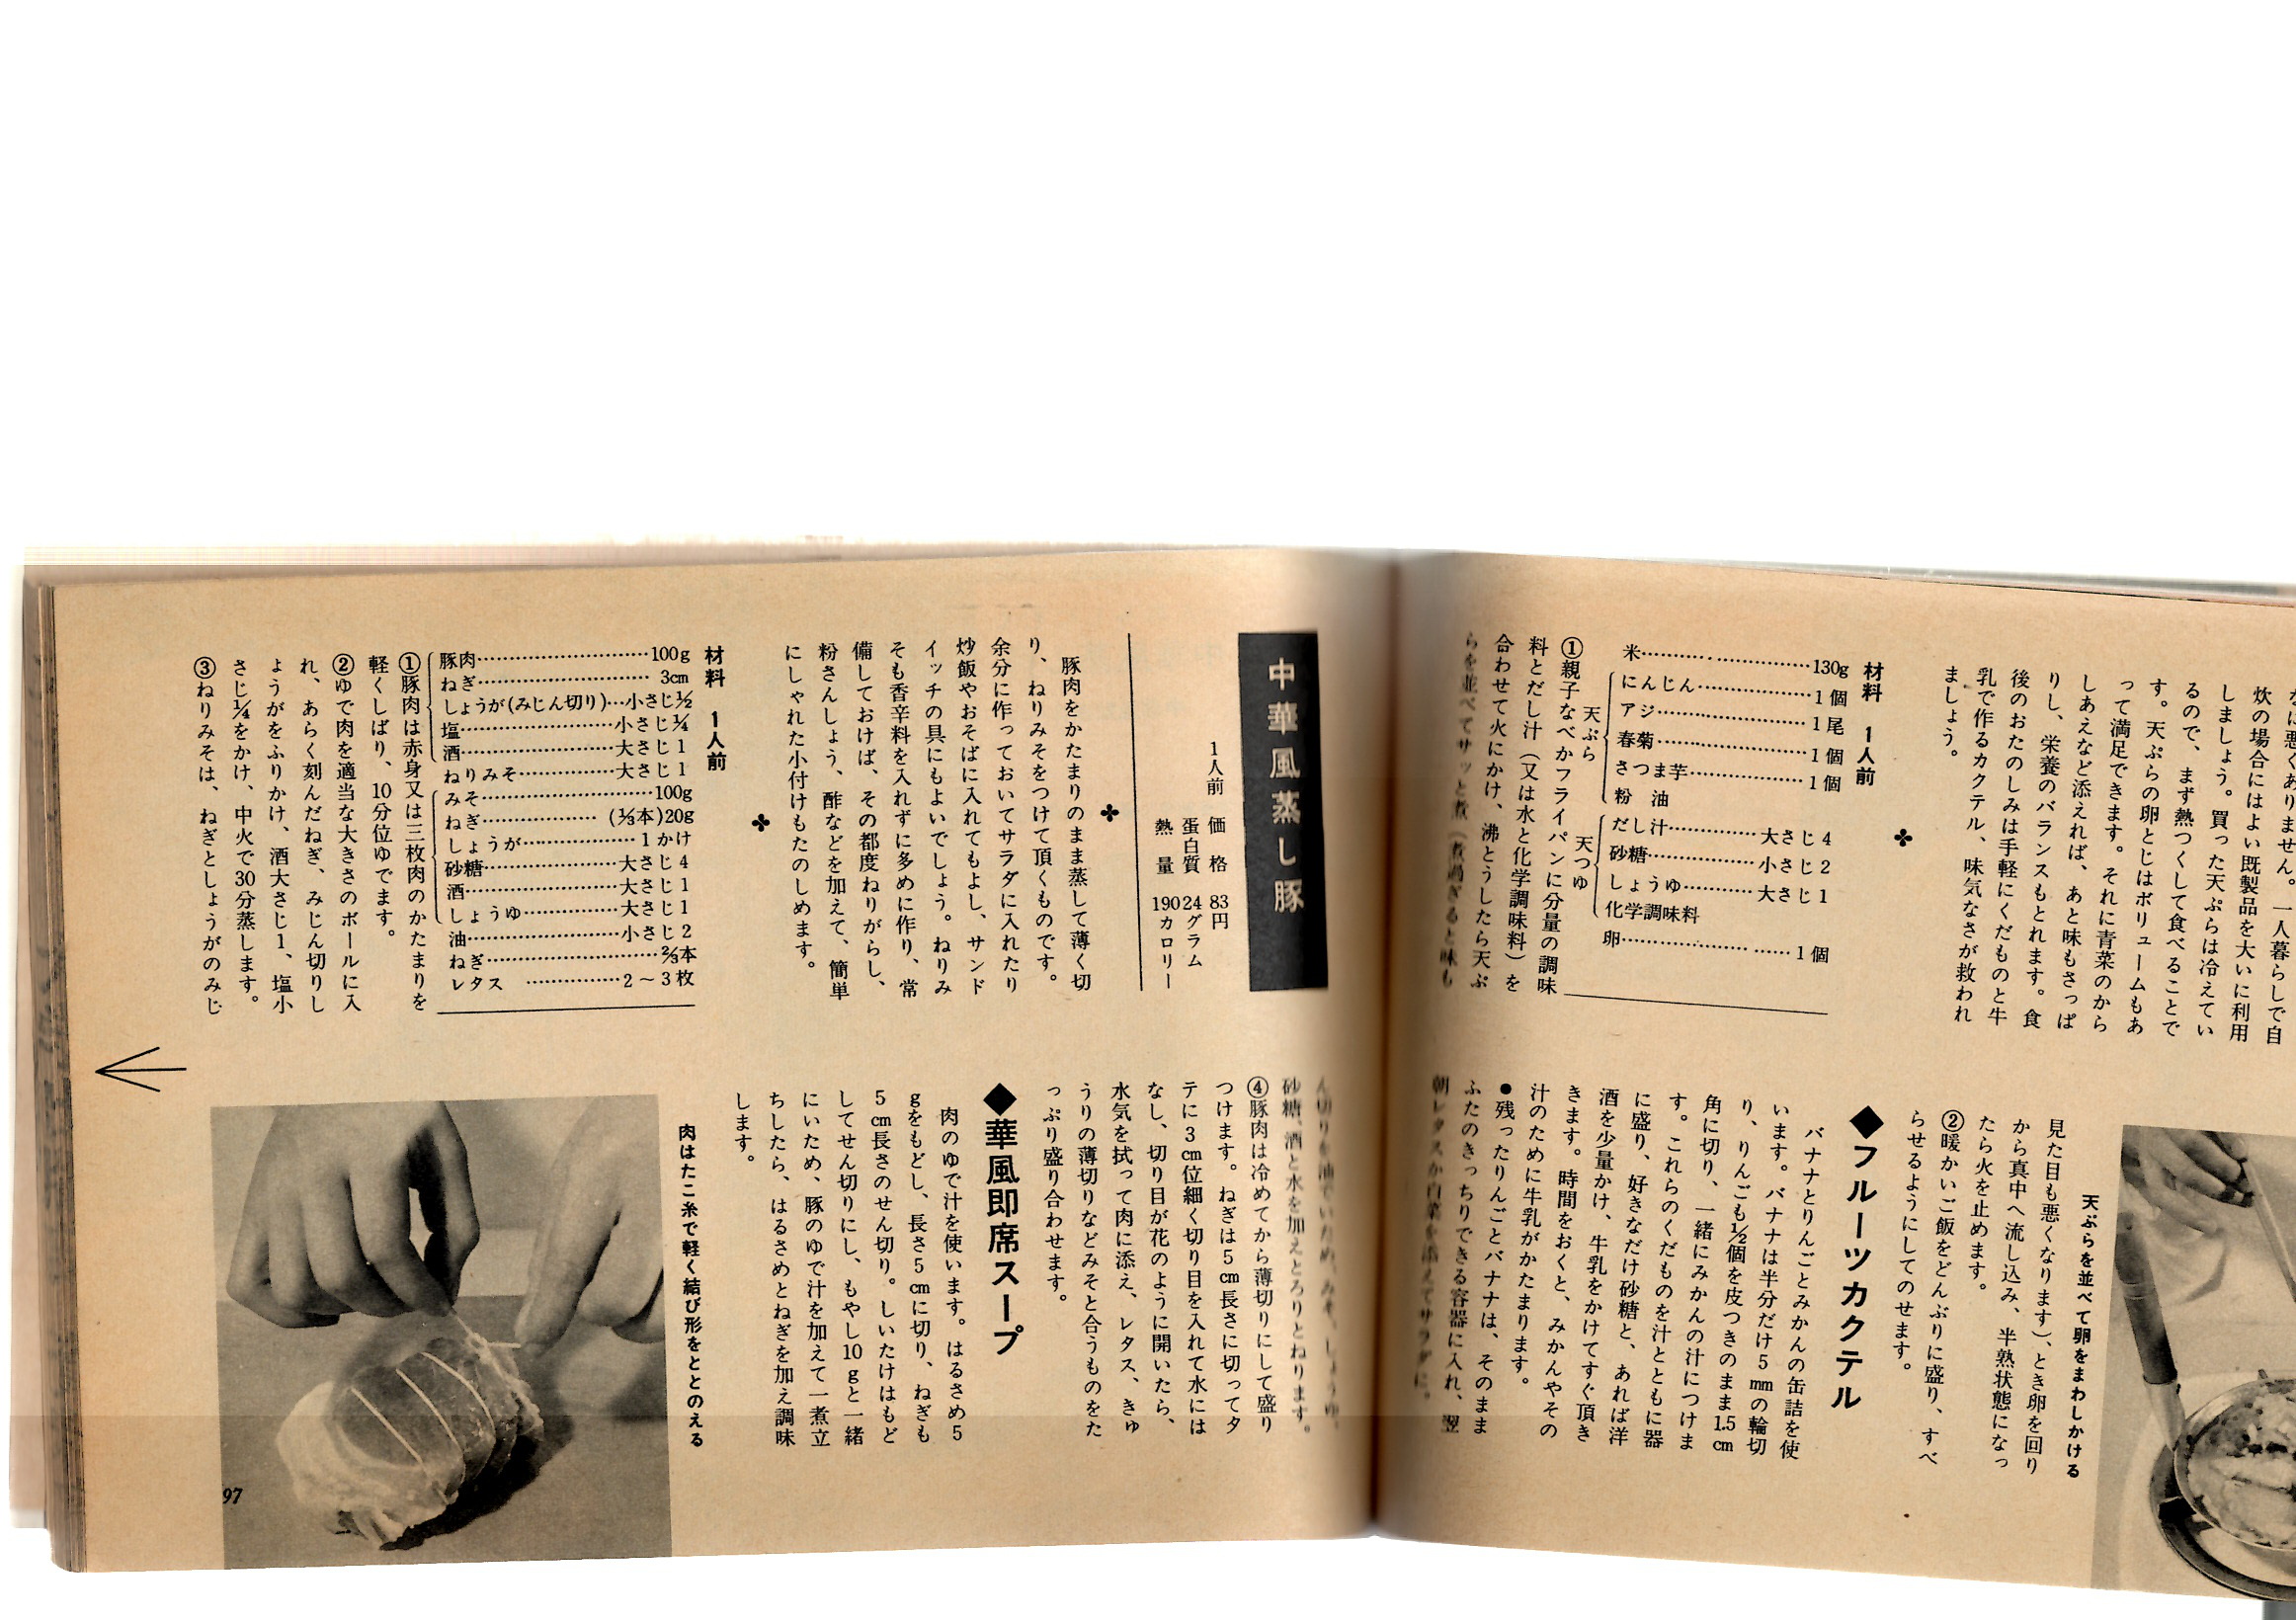 炊の場合にはよい既製品を大いに利用
しましょう。買った天ぷらは冷えてい
るので、まず熱つくして食べることで
す。天ぷらの卵とじはボリュームもあ
って満足できます。それに青菜のから
しあえなど添えれば、あと味もさっぱ
りし、栄養のバランスもとれます。食
後のおたのしみは手軽にくだものと牛
乳で作るカクテル、味気なさが救われ
ましょう。
材料 1人前
米 130g
天ぷら
にんじん 1個
アジ 1尾
春菊 1個
さつま芋 1個
粉 油
天つゆ
だし汁 大さじ4
砂糖 小さじ2
しょうゆ 大さじ1
化学調味料
卵 1個
①親子なべかフライパンに分量の調味
料とだし汁(又は水と化学調味料)を
合わせて火にかけ、沸とうしたら天ぷ
らを並べてサッと煮(煮過ぎると味も
天ぷらを並べて卵をまわしかける
見た目も悪くなります)、とき卵を回り
から真中へ流し込み、半熟状態になっ
たら火を止めます。
②暖かいご飯をどんぶりに盛り、すべ
らせるようにしてのせます。
◆フルーツカクテル
バナナとりんごとみかんの缶詰を使
います。バナナは半分だけ5mmの輪切
り、りんごも½個を皮つきのまま1.5cm
角に切り、一緒にみかんの汁につけま
す。これらのくだものを汁とともに器
に盛り、好きなだけ砂糖と、あれば洋
酒を少量かけ、牛乳をかけてすぐ頂き
きます。時間をおくと、みかんやその
汁のために牛乳がかたまります。
●残ったりんごとバナナは、そのまま
ふたのきっちりできる容器に入れ、翌
朝レタスか白菜を添えてサラダに。
中華風蒸し豚
1人前 価格 83円
蛋白質 24グラム
熱量 190カロリー
豚肉をかたまりのまま蒸して薄く切
り、ねりみそをつけて頂くものです。
余分に作っておいてサラダに入れたり
炒飯やおそばに入れてもよし、サンド
イッチの具にもよいでしょう。ねりみ
そも香辛料を入れずに多めに作り、常
備しておけば、その都度ねりがらし、
粉さんしょう、酢などを加えて、簡単
にしゃれた小付けもたのしめます。
材料 1人前
豚肉 100g
ねぎ 3cm
しょうが(みじん切り)…小さじ½
塩 小さじ¼
酒 大さじ1
ねりみそ 大さじ1
みそ 100g
ねぎ (⅓本)20g
しょうが 1かけ
砂糖 大さじ4
酒 大さじ1
しょうゆ 大さじ1
油 小さじ2
ねぎ ⅔本
レタス 2〜3枚
①豚肉は赤身又は三枚肉のかたまりを
軽くしばり、10分位ゆでます。
②ゆで肉を適当な大きさのボールに入
れ、あらく刻んだねぎ、みじん切りし
ょうがをふりかけ、酒大さじ1、塩小
さじ¼をかけ、中火で30分蒸します。
③ねりみそは、ねぎとしょうがのみじ
ん切りを油でいため、みそ、しょうゆ、
砂糖、酒と水を加えとろりとねります。
④豚肉は冷めてから薄切りにして盛り
つけます。ねぎは5cm長さに切ってタ
テに3cm位細く切り目を入れて水には
なし、切り目が花のように開いたら、
水気を拭って肉に添え、レタス、きゅ
うりの薄切りなどみそと合うものをた
っぷり盛り合わせます。
◆華風即席スープ
肉のゆで汁を使います。はるさめ5
gをもどし、長さ5cmに切り、ねぎも
5cm長さのせん切り。しいたけはもど
してせん切りにし、もやし10gと一緒
にいため、豚のゆで汁を加えて一煮立
ちしたら、はるさめとねぎを加え調味
します。
肉はたこ糸で軽く結び形をととのえる
97